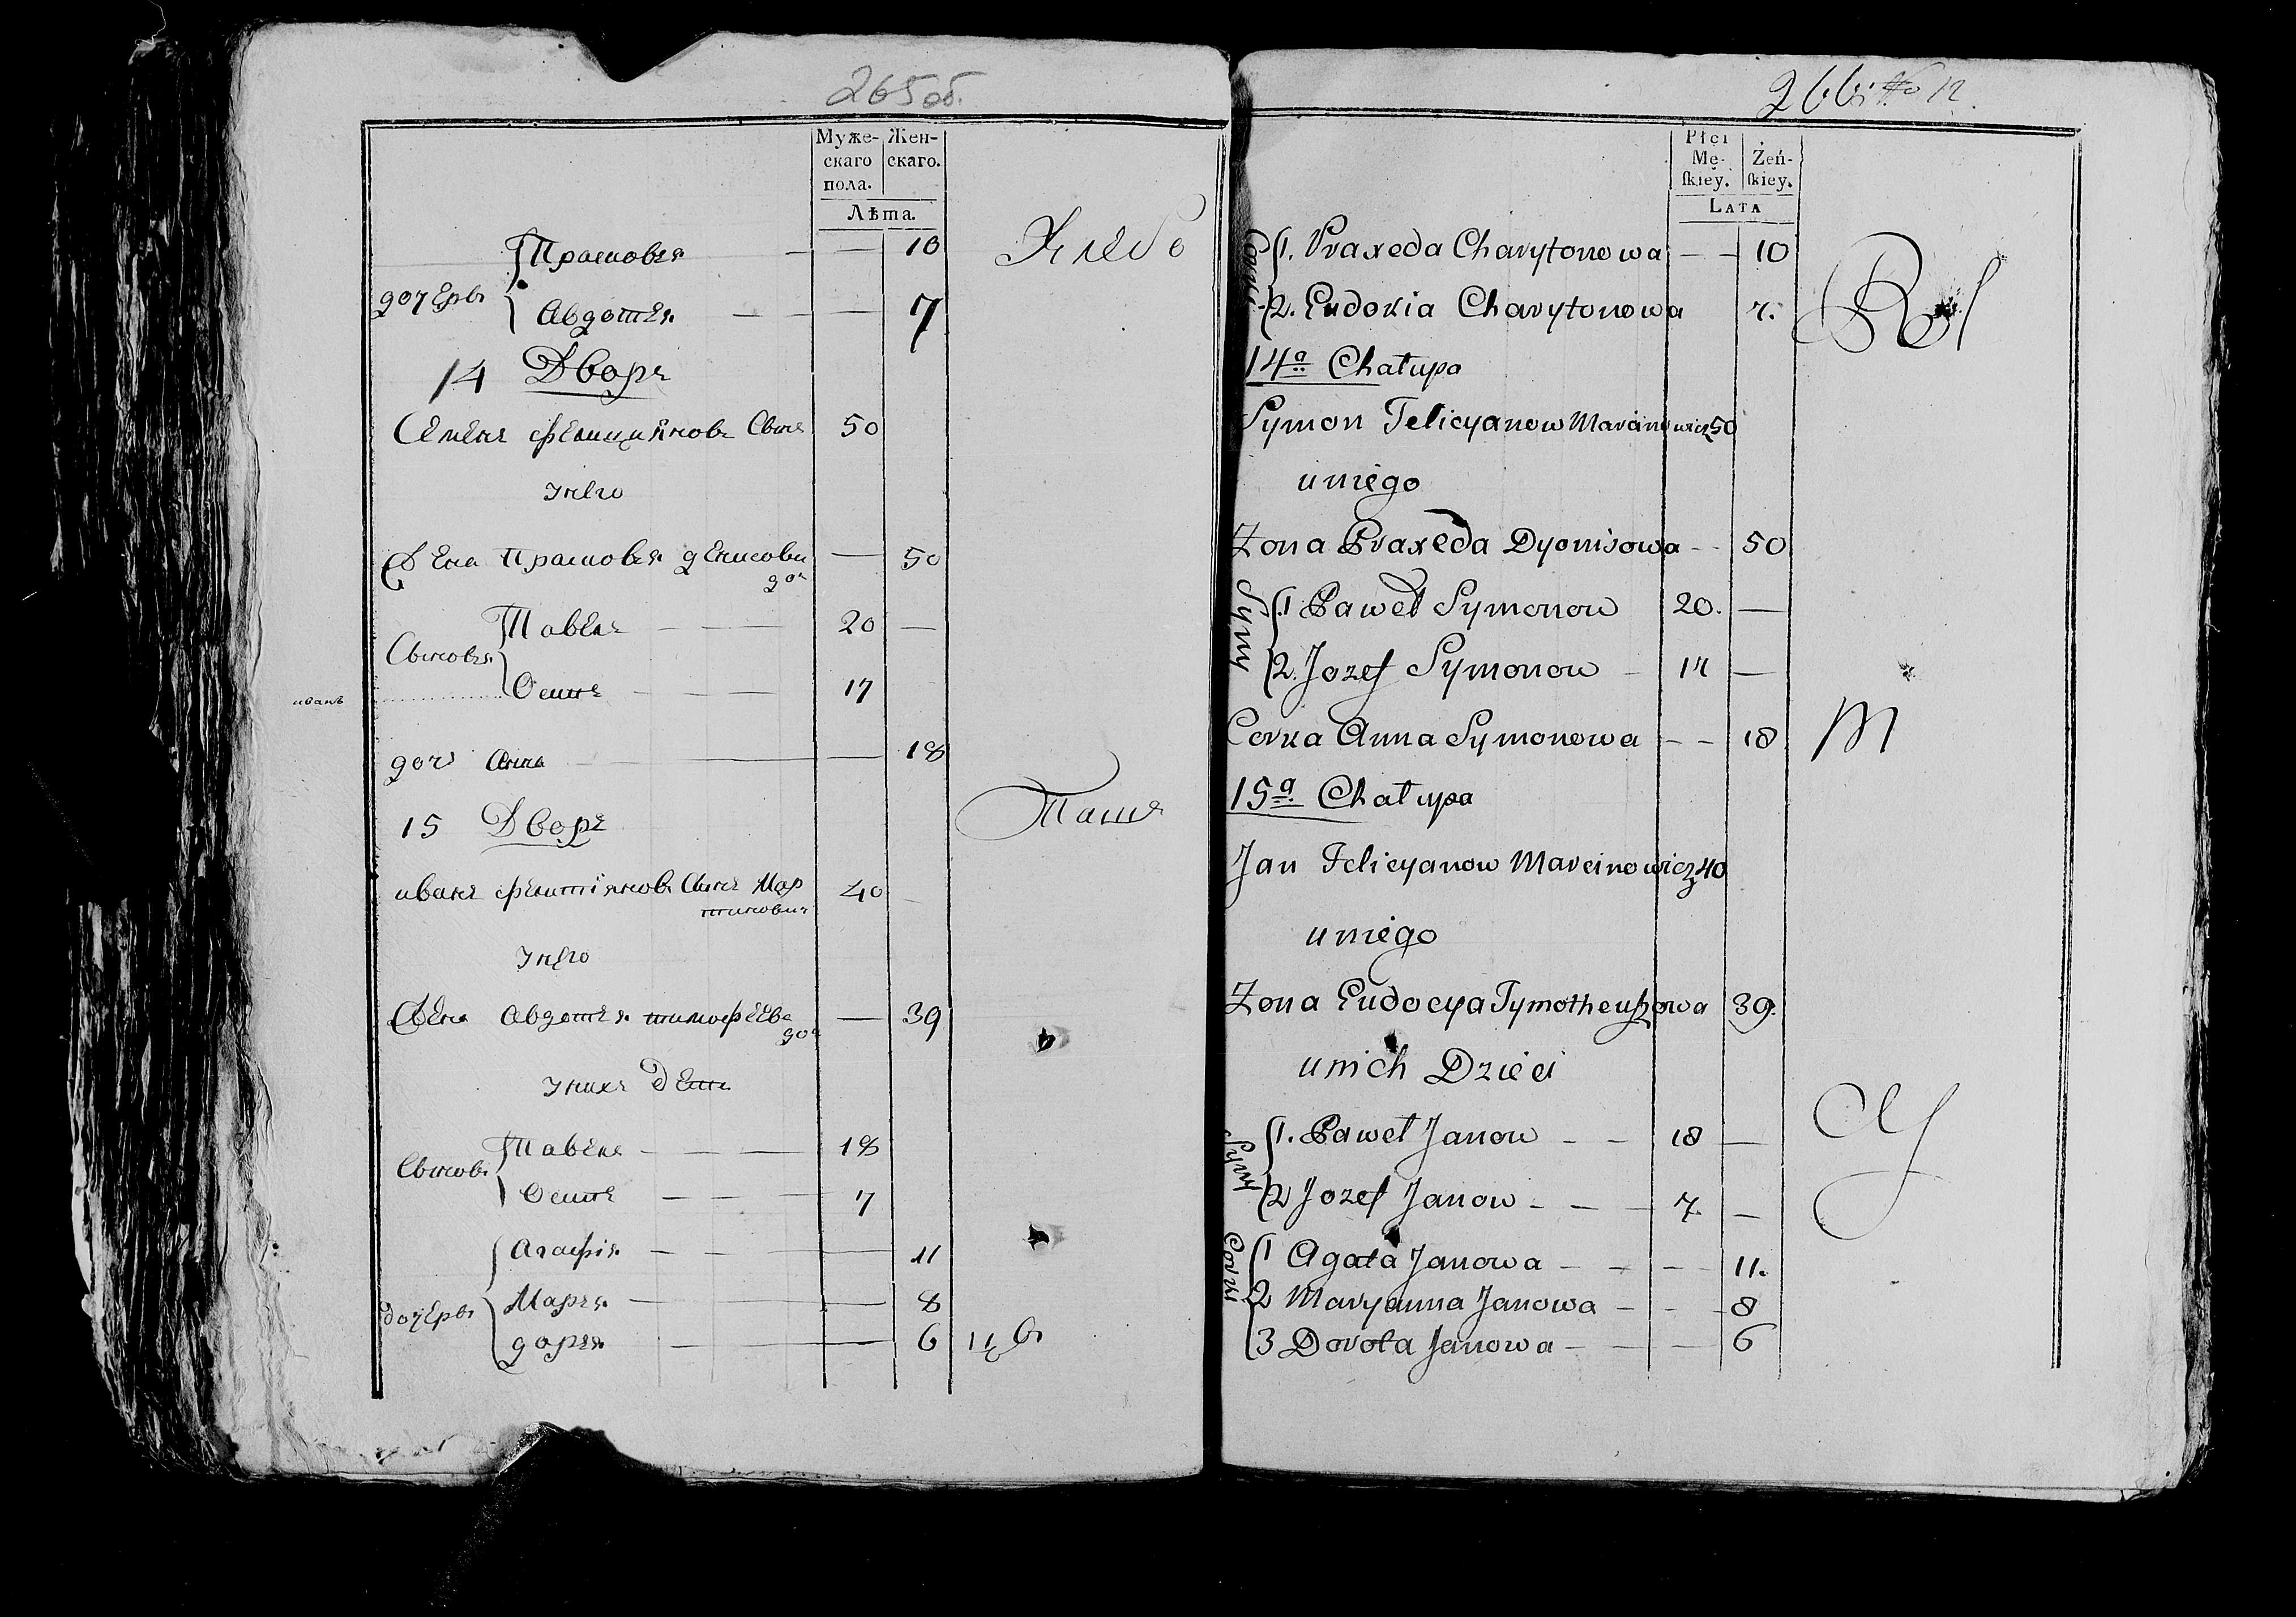 265об.
Муже-
скаго
пола.
Жен-
скаго.
Лѣта.
Прасковья — — 10
Хлебо
дочерь
Авдотья — — — 7
14 Дворъ
Семенъ Фелицияновъ Сынъ 50
Унего
Жена Прасковья Денисова — 50
доч
Павелъ — — — 20 —
Сыновья
Осипъ — — — 17
иванъ
доч Анна — — 18
15 Дворъ
Паше
иванъ Фелитіяновъ Сынъ Мар 40
тиновичъ
Унего
Жена Авдотья тимофеева — 39
доч
Унихъ Дети
Павелъ — — — 18
Сынов
Осипъ — — — 7
Агафія — — — 11
дочерь
Марья — — 8
дарья — — — 6
266
12
Płci
Mę-
skiey.
Żeń-
skiey.
LATA
Corki
1. Praxeda Charytonowa — — 10
2. Eudokia Charytonowa 7.
Rol
14a Chałupa
Symon Felicyanow Marcinowicz 50
uniego
Zona Praxeda Dyonisowa - - 50
Syny
1 Paweł Symonow 20. —
2. Jozef Symonow — 17 —
Corka Anna Symonowa — — 18
M
15a Chałupa
Jan Felicyanow Marcinowicz 40
uniego
Zona Eudocya Tymotheuszowa 39.
unich Dzieci
Syny
1. Paweł Janow — — 18 —
2 Jozef Janow - — — 7. —
Corki
1 Agata Janowa — — — 11.
2 Maryanna Janowa — - - 8
3 Dorota Janowa — — — 6